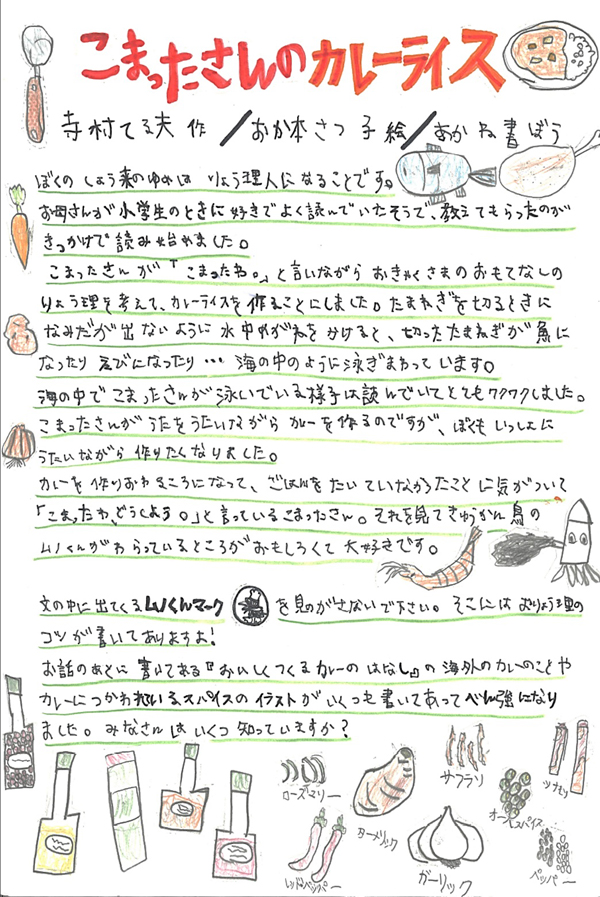 こまったさんのカレーライス
寺村てる夫 作 /おか本さつ子 絵/あかね書ぼう
ぼくのしょう来のゆめは りょう理人になることです。
お母さんが小学生のときに好きでよく読んでいたそうで、教えてもらったのが
きっかけで読み始めました。
こまったさんが「こまったわ。」と言いながら おきゃくさまのおもてなしの
りょう理を考えて、カレーライスを作ることにしました。たまねぎを切るときに
なみだが出ないように水中めがねをかけると、切ったたまねぎが魚に
なったり えびになったり… 海の中のように泳ぎまわっています。
海の中でこまったさんが泳いでいる様子は読んでいてとてもワクワクしました。
こまったさんがうたをうたいながら カレーを作るのですが、ぼくもいっしょに
うたいながら作りたくなりました。
カレーを作りおわるころになって、ごはんをたいていなかったことに気がついて
「こまったわ、どうしよう。」と言っているこまったさん。それを見てきゅうかん鳥の
ムノくんがわらっているところがおもしろくて大好きです。
文の中に出てくるムノくんマーク を見のがさないで下さい。そこにはおりょう理の
コツが書いてありますよ!
お話のあとに書いてある『おいしくつくるカレーのはなし』の海外のカレーのことや
カレーにつかわれているスパイスのイラストがいくつも書いてあってべん強になり
ました。みなさんはいくつ知っていますか?
ローズマリー
ターメリック
サフラン
オールスパイス
ナツメグ
レッドペッパー
ガーリック
ペッパー